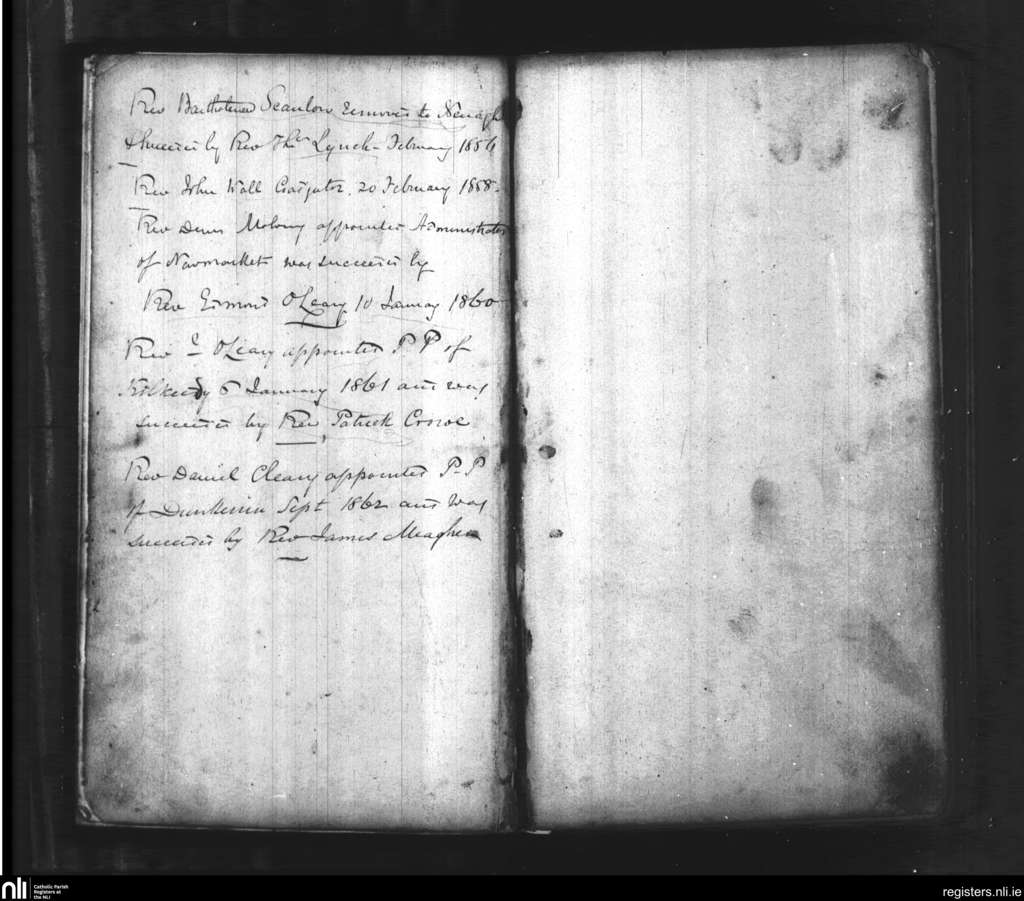 Rev Bartholomew Scanlon removed to Nenagh
& succeeded by Rev Thos Lynch - February 1856
Rev John Wall Coadjutor, 20 February 1858 -
Rev Denis Molony appointed Administrator
of Newmarket was succeeded by
Rev Edmond O'Leary 10 January 1860
Rev O'Leary appointed P P of
6 January 1861 and was
succeeded by Rev Patrick Crowe
Rev Daniel Cleary appointed P-P
of Dunkerrin Sept 1862 and was
succeeded by Rev James Meagher
nli
Catholic Parish
Registers at
the NLI
registers.nli.ie